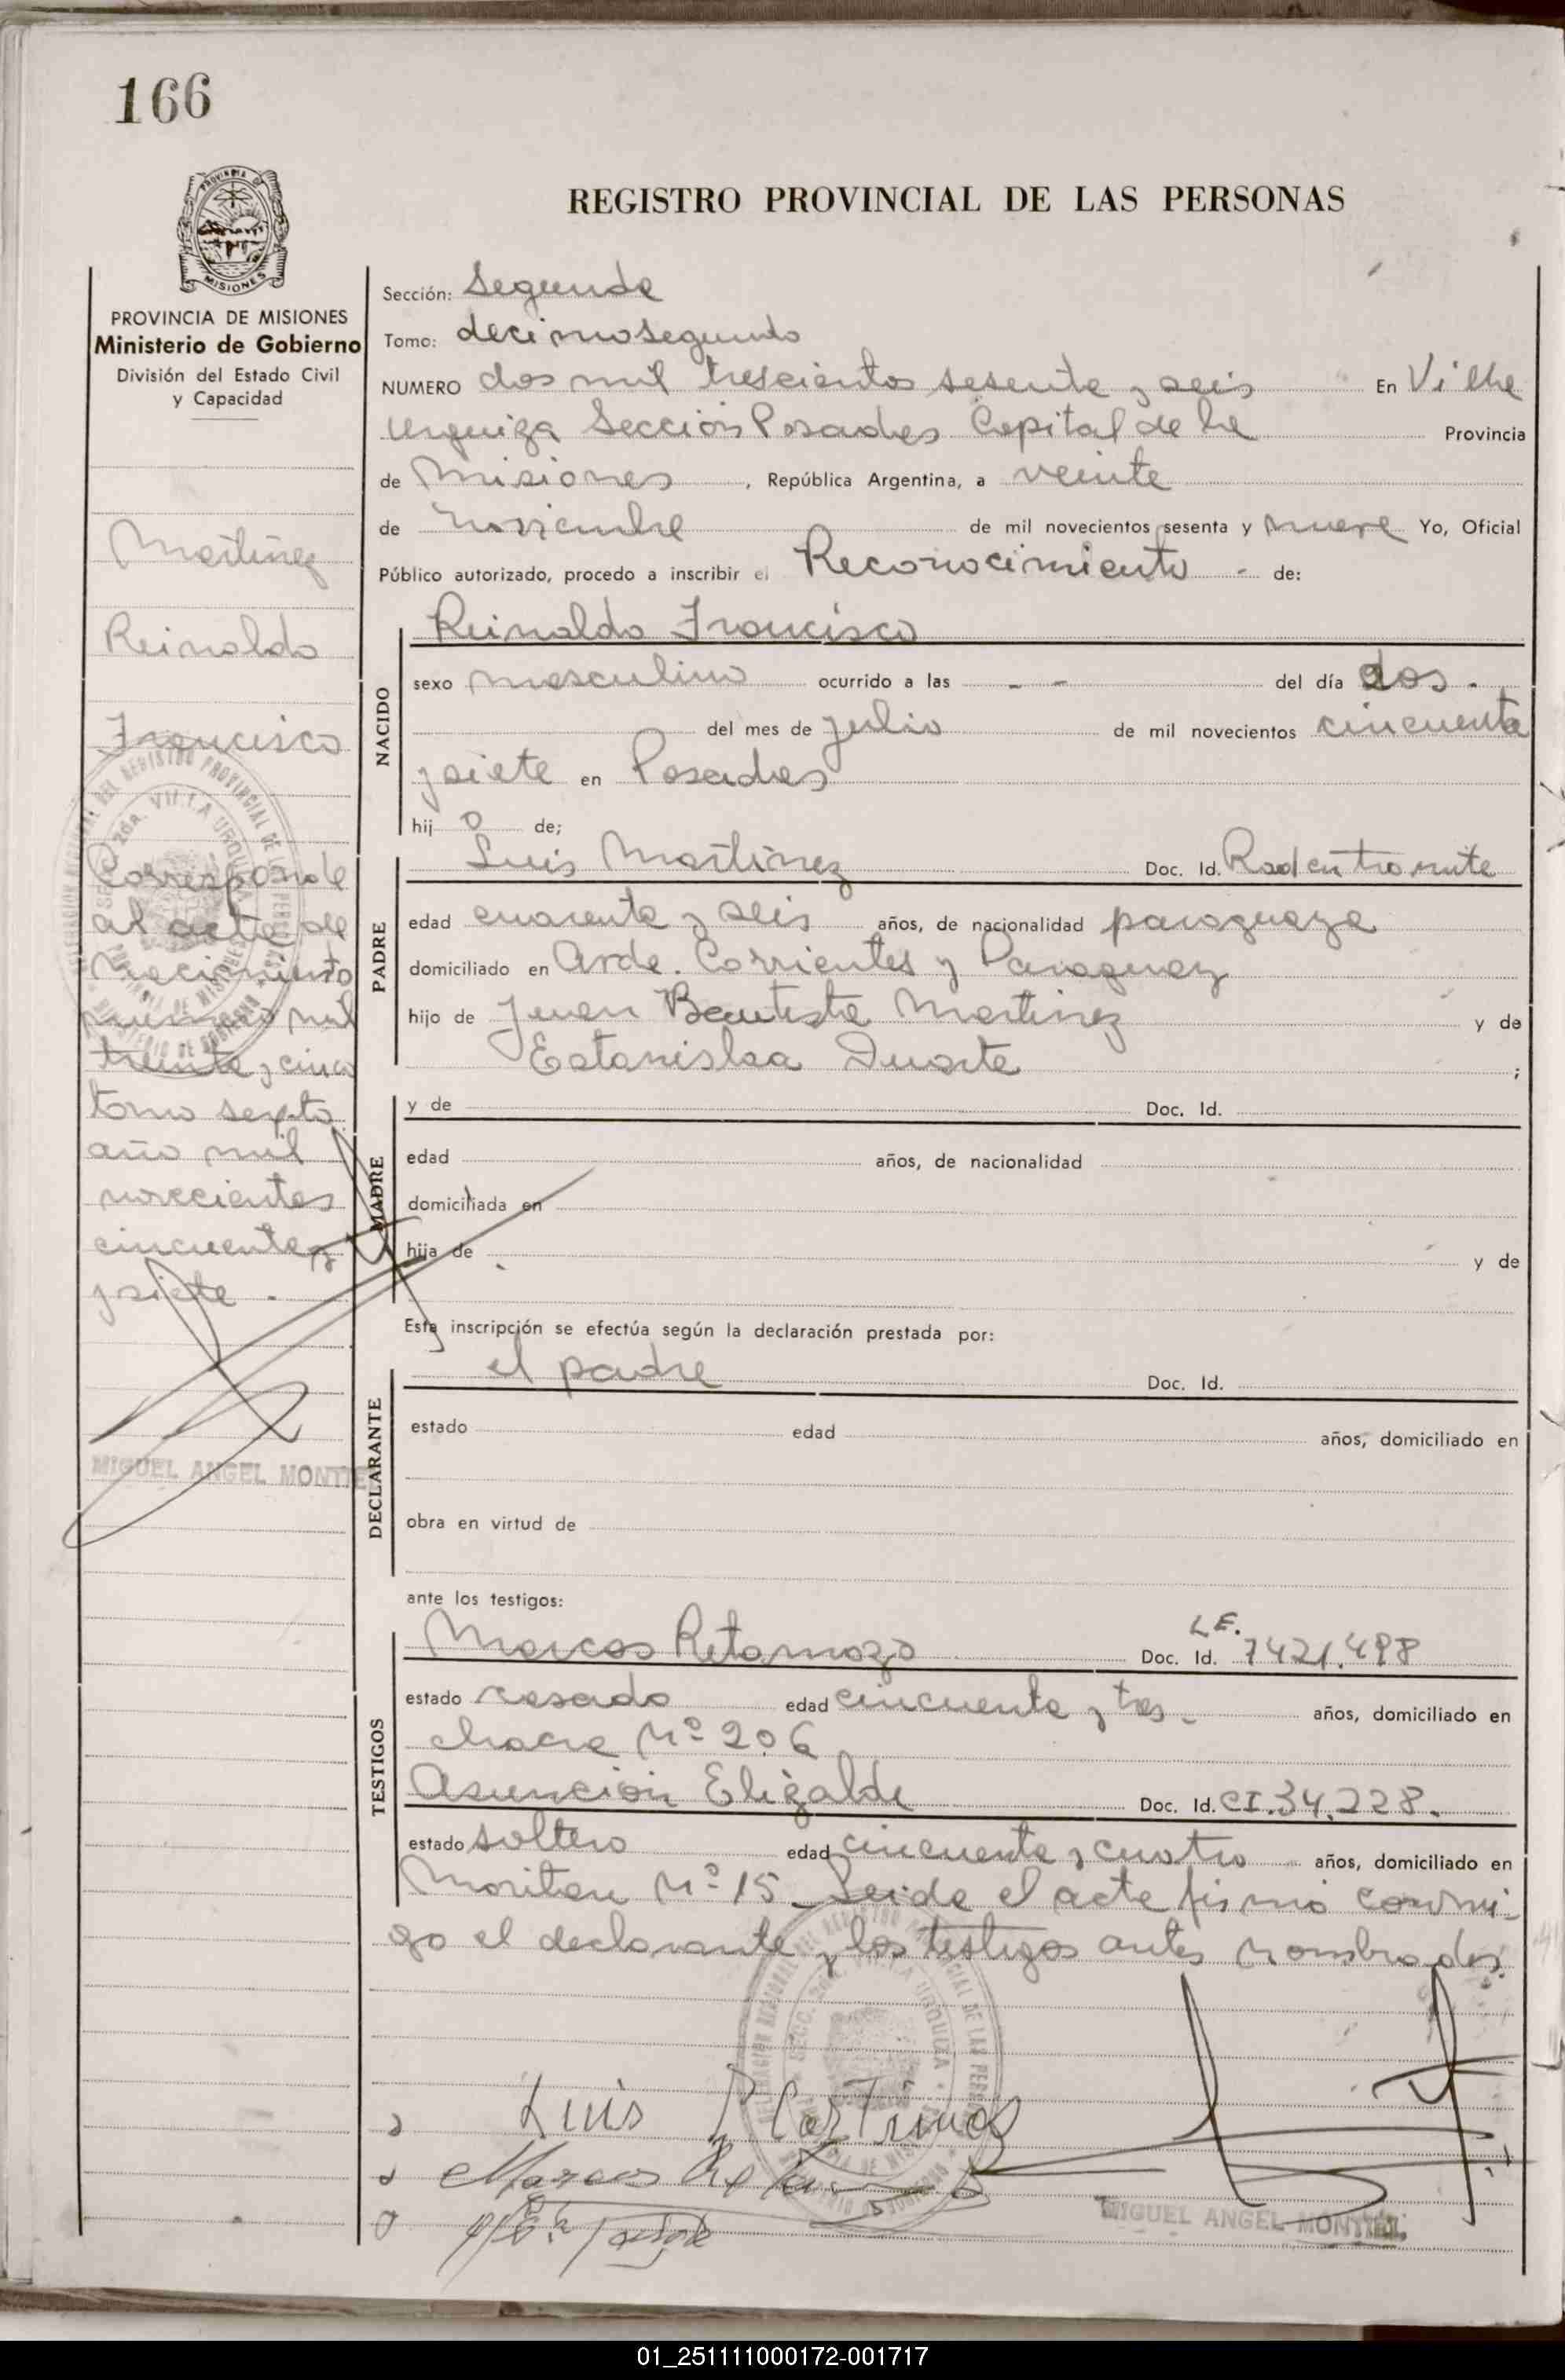 166
REGISTRO PROVINCIAL DE LAS PERSONAS
PROVINCIA DE MISIONES
Ministerio de Gobierno
División del Estado Civil
y Capacidad
Martinez
Reinaldo
Francisco
Corresponde
al acta de
nacimiento
numero mil
treinta y cinco
tomo sexto
año mil
novecientos
cincuenta
y siete.
MIGUEL ANGEL MONTIE
Sección: Segunda
Tomo: decimosegundo
NUMERO dos mil trescientos sesenta y seis En Villa
Urquiza Sección Posadas Capital de la Provincia
de Misiones, República Argentina, a veinte
de noviembre de mil novecientos sesenta y nueve Yo, Oficial
Público autorizado, procedo a inscribir el Reconocimiento - de:
NACIDO
Reinaldo Francisco
sexo masculino ocurrido a las - - del día dos.
del mes de julio de mil novecientos cincuenta
y siete en Posadas
hijo de;
PADRE
Luis Martinez Doc. Id. Rad en tramite
edad cuarenta y seis años, de nacionalidad paraguaya
domiciliado en Avda. Corrientes y Paraguay
hijo de Juan Bautista Martinez y de
Estanislaa Duarte ;
MADRE
y de Doc. Id.
edad años, de nacionalidad
domiciliada en
hija de y de
Esta inscripción se efectúa según la declaración prestada por:
DECLARANTE
el padre Doc. Id.
estado edad años, domiciliado en
obra en virtud de
ante los testigos:
TESTIGOS
Marcos Retamozo Doc. Id. L.E. 7421.498
estado casado edad cincuenta y tres- años, domiciliado en
chacra Nº 206
Asuncion Elizalde Doc. Id. CI.34.228.
estado soltero edad cincuenta y cuatro años, domiciliado en
Nº 15- Leida el acta firmó conmi-
go el declarante y los testigos antes nombrados.
Luis Martinez
Marcos
MIGUEL ANGEL MONTIEL
01_251111000172-001717